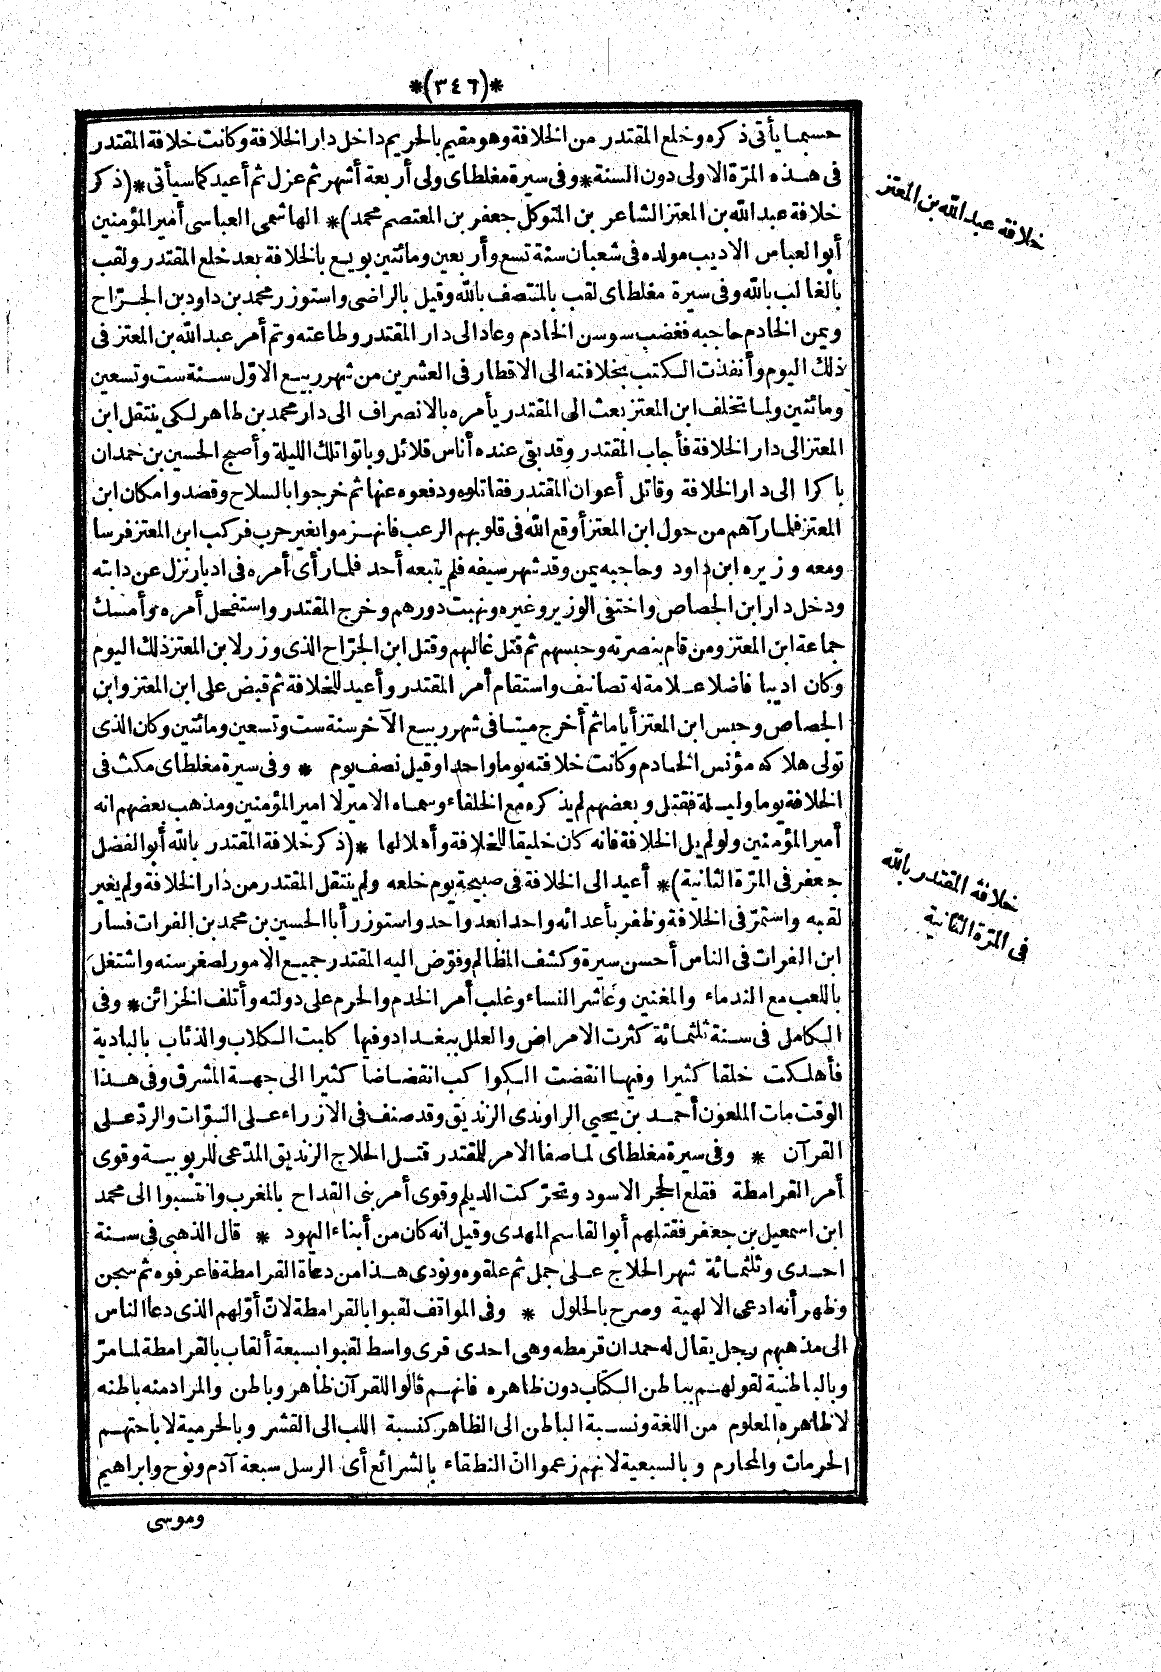 *(٣٤٦)*
حسبما يأتى ذكره وخلع المقتدر من الخلافة وهو مقيم بالحريم داخل دار الخلافة وكانت خلافة المقتدر
فى هذه المرّة الاولى دون السنة * وفى سيرة مغلطاى ولى أربعة أشهر ثم عزل ثم أعيد كما سيأتى * (ذكر
خلافة عبد الله بن المعتز الشاعر بن المتوكل جعفر بن المعتصم محمد) * الهاشمى العباسى أمير المؤمنين
أبو العباس الاديب مولده فى شعبان سنة تسع وأربعين ومائتين بويع بالخلافة بعد خلع المقتدر ولقب
بالغالب بالله وفى سيرة مغلطاى لقب بالمنتصف بالله وقيل بالراضى واستوزر محمد بن داود بن الجرّاح
ويمن الخادم حاجبه فغضب سوسن الخادم وعاد الى دار المقتدر وطاعته وتم أمر عبد الله بن المعتز فى
ذلك اليوم وأنفذت الكتب بخلافته الى الاقطار فى العشرين من شهر ربيع الاوّل سنة ست وتسعين
ومائتين ولما تخلف ابن المعتز بعث الى المقتدر يأمره بالانصراف الى دار محمد بن طاهر لكى ينتقل ابن
المعتز الى دار الخلافة فأجاب المقتدر وقد بقى عنده أناس قلائل وباتوا تلك الليلة وأصبح الحسين بن حمدان
باكرا الى دار الخلافة وقاتل أعوان المقتدر فقاتلوه ودفعوه عنها ثم خرجوا بالسلاح وقصدوا مكان ابن
المعتز فلما رآهم من حول ابن المعتز أوقع الله فى قلوبهم الرعب فانهزموا بغير حرب فركب ابن المعتز فرسا
ومعه وزيره ابن داود وحاجبه يمن وقد شهر سيفه فلم يتبعه أحد فلما رأى أمره فى ادبار نزل عن دابته
ودخل دار ابن الجصاص واختفى الوزير وغيره ونهبت دورهم وخرج المقتدر واستفحل أمره وأمسك
جماعة ابن المعتز ومن قام بنصرته وحبسهم ثم قتل غالبهم وقتل ابن الجرّاح الذى وزر لابن المعتز ذلك اليوم
وكان اديبا فاضلا علامة له تصانيف واستقام أمر المقتدر وأعيد للخلافة ثم قبض على ابن المعتز وابن
الجصاص وحبس ابن المعتز أياما ثم أخرج ميتا فى شهر ربيع الآخر سنة ست وتسعين ومائتين وكان الذى
تولى هلاكه مؤنس الخادم وكانت خلافته يوما واحدا وقيل نصف يوم * وفى سيرة مغلطاى مكث فى
الخلافة يوما وليلة فقتل وبعضهم لم يذكره مع الخلفاء وسماه الامير لا امير المؤمنين ومذهب بعضهم انه
أمير المؤمنين ولو لم يل الخلافة فانه كان خليقا للخلافة وأهلا لها * (ذكر خلافة المقتدر بالله أبو الفضل
جعفر فى المرّة الثانية) * أعيد الى الخلافة فى صبيحة يوم خلعه ولم ينتقل المقتدر من دار الخلافة ولم يغير
لقبه واستمرّ فى الخلافة وظفر بأعدائه واحدا بعد واحد واستوزر أبا الحسين بن محمد بن الفرات فسار
ابن الفرات فى الناس أحسن سيرة وكشف المظالم وفوّض اليه المقتدر جميع الامور لصغر سنه واشتغل
باللعب مع الندماء والمغنين وعاشر النساء وغلب أمر الخدم والحرم على دولته وأتلف الخزائن * وفى
الكامل فى سنة ثلثمائة كثرت الامراض والعلل ببغداد وفيها كلبت الكلاب والذئاب بالبادية
فأهلكت خلقا كثيرا وفيها انقضت الكواكب انقضاضا كثيرا الى جهة المشرق وفى هذا
الوقت مات الملعون أحمد بن يحيى الراوندى الزنديق وقد صنف فى الازراء على النبوّات والردّ على
القرآن * وفى سيرة مغلطاى لما صفا الامر للمقتدر قتل الحلاج الزنديق المدّعى للربوبية وقوى
أمر القرامطة فقلع الحجر الاسود وتحرّكت الديلم وقوى أمر بنى القداح بالمغرب وانتسبوا الى محمد
ابن اسمعيل بن جعفر فقتلهم أبو القاسم المهدى وقيل انه كان من أبناء اليهود * قال الذهبى فى سنة
احدى وثلثمائة شهر الحلاج على جمل ثم علقوه ونودى هذا من دعاة القرامطة فاعرفوه ثم سجن
وظهر أنه ادعى الالهية وصرح بالحلول * وفى المواقف لقبوا بالقرامطة لانّ أوّلهم الذى دعا الناس
الى مذهبهم رجل يقال له حمدان قرمطه وهى احدى قرى واسط لقبوا بسبعة ألقاب بالقرامطة لما مرّ
وبالباطنية لقولهم بباطن الكتاب دون ظاهره فانهم قالوا للقرآن ظاهر وباطن والمراد منه باطنه
لا ظاهره المعلوم من اللغة ونسبة الباطن الى الظاهر كنسبة اللب الى القشر وبالحرمية لاباحتهم
الحرمات والمحارم وبالسبعية لانهم زعموا انّ النطقاء بالشرائع أى الرسل سبعة آدم ونوح وابراهيم
وموسى
خلافة عبد الله بن المعتز
خلافة المقتدر بالله
فى المرّة الثانية